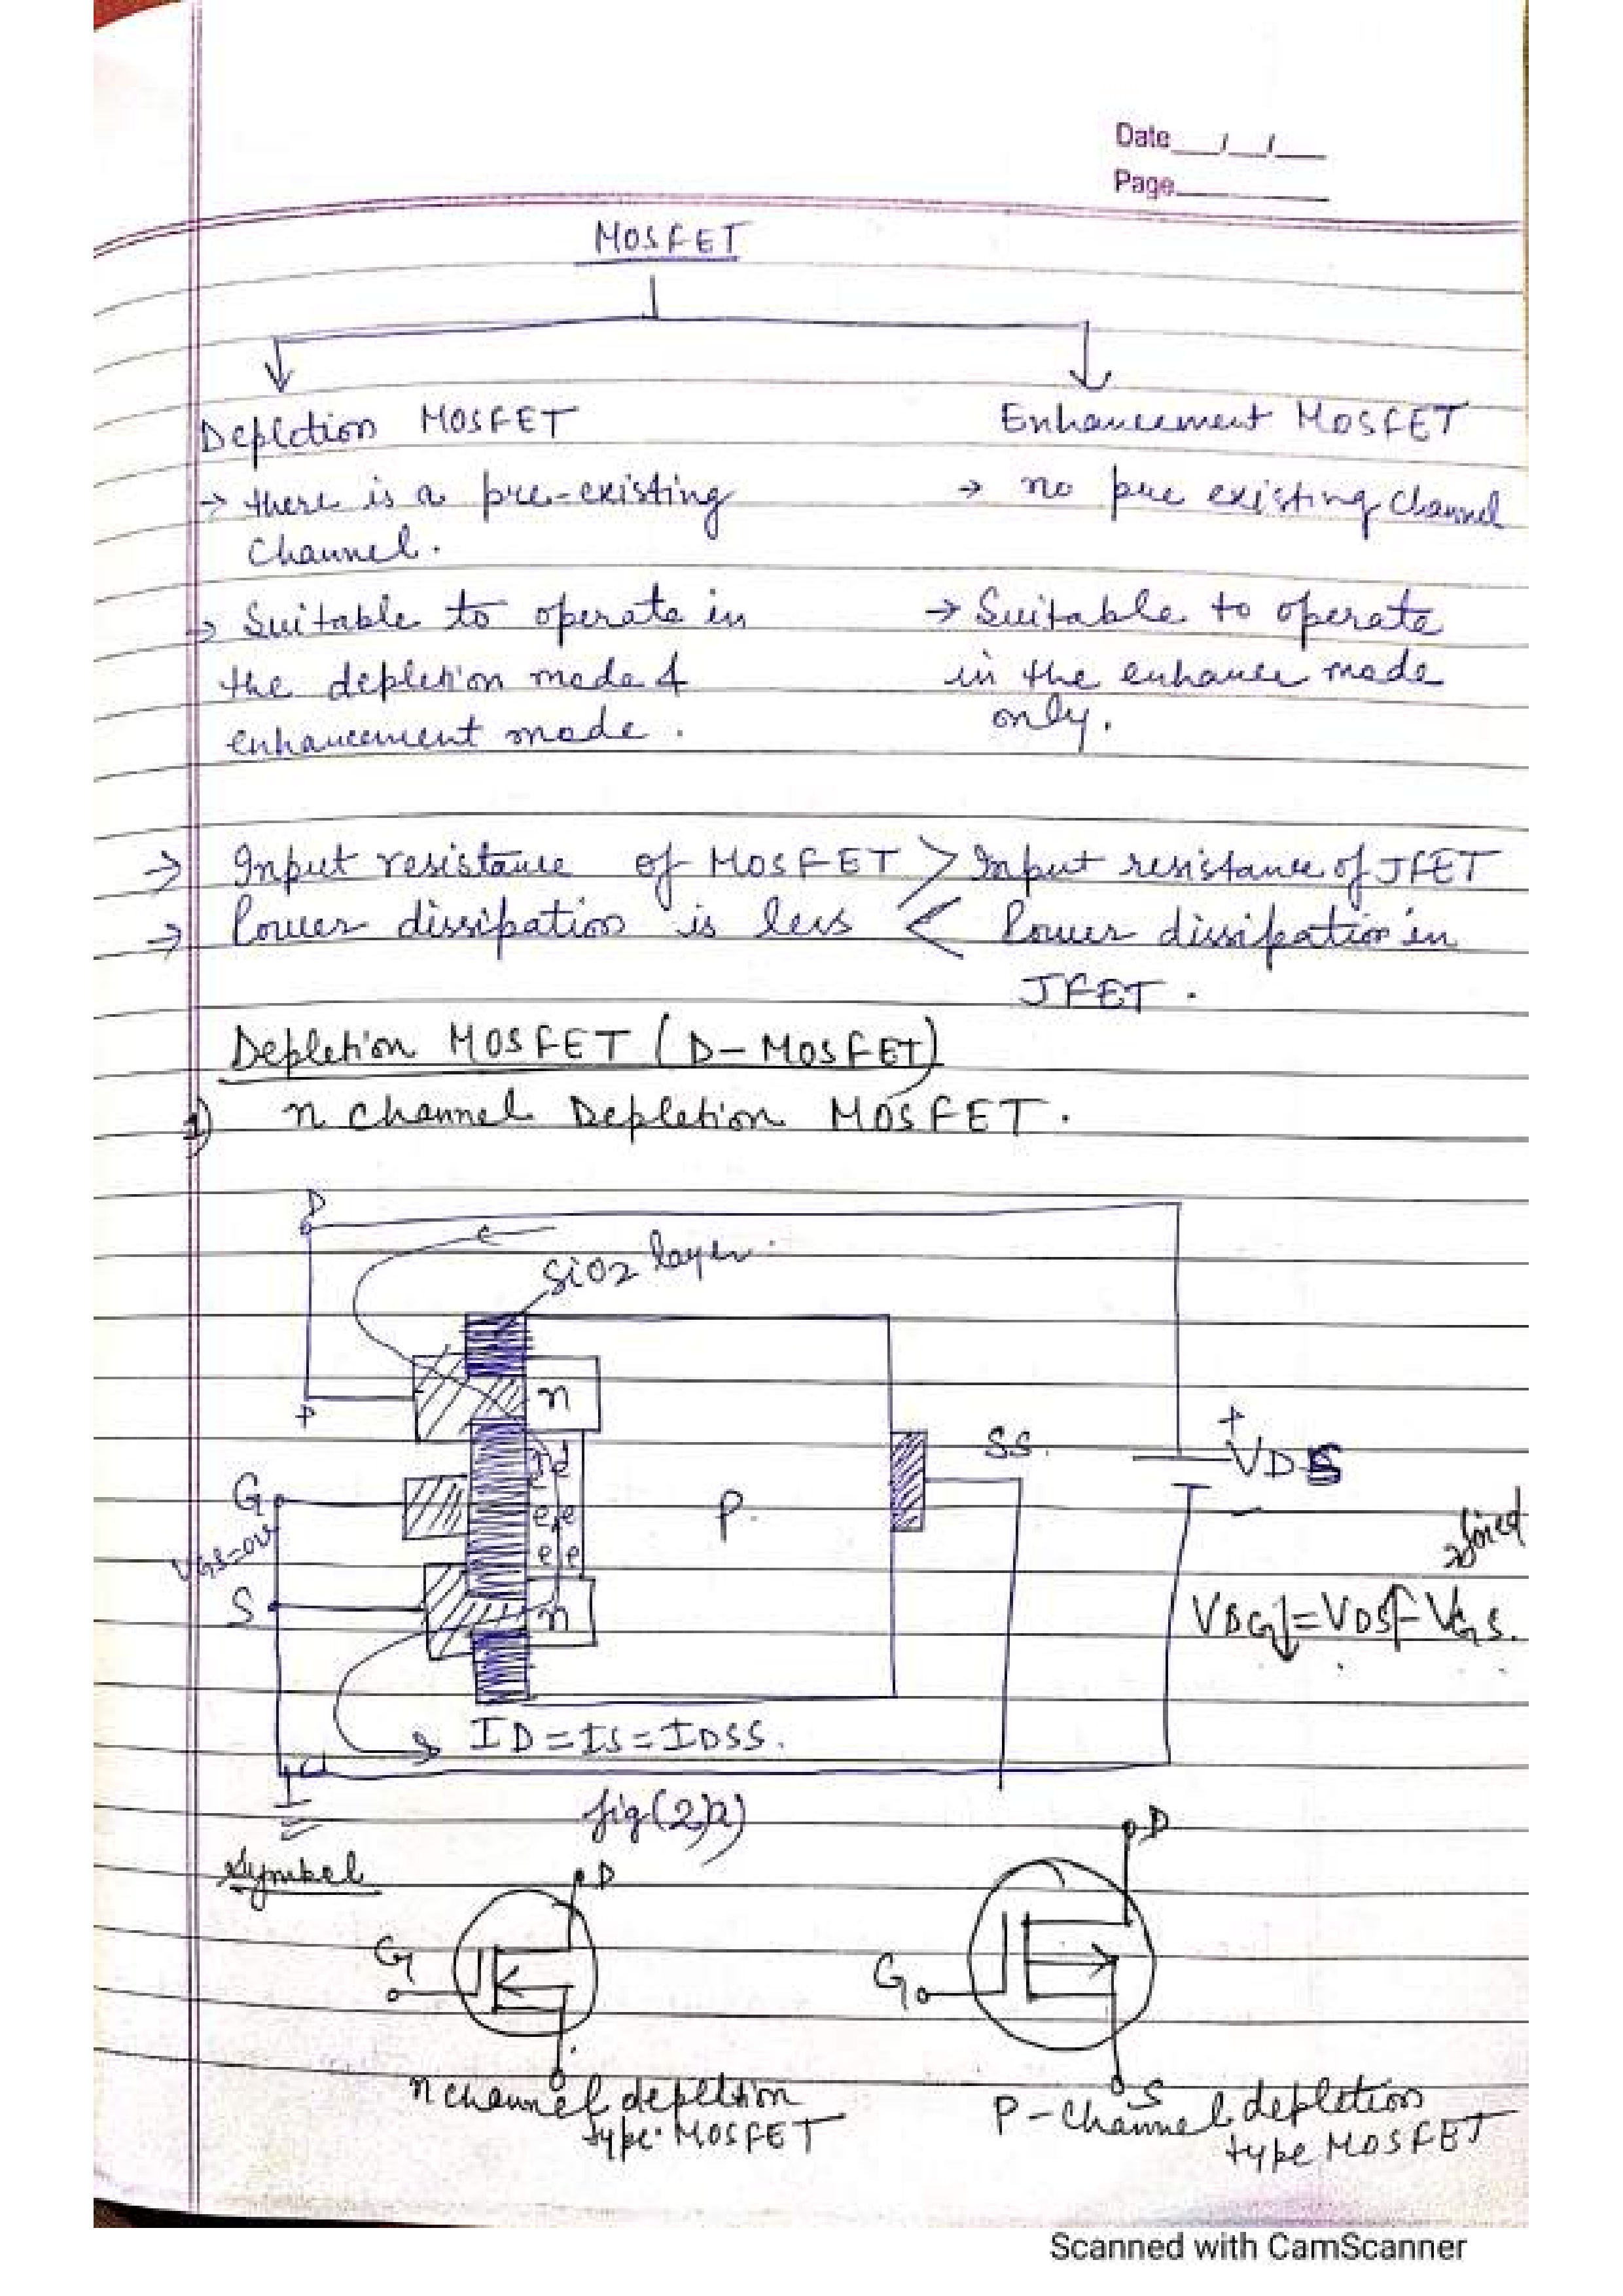 Date __/__/__
Page
MOSFET
Depletion MOSFET
Enhancement MOSFET
→ there is a pre-existing
channel.
→ no pre existing channel
→ Suitable to operate in
the depletion mode &
enhancement mode.
→ Suitable to operate
in the enhance mode
only.
→ Input resistance of MOSFET > Input resistance of JFET
→ Power dissipation is less < Power dissipation in
JFET.
Depletion MOSFET (D-MOSFET)
1) n channel Depletion MOSFET.
D
SiO2 layer.
n
+
SS.
+
VDS
G
e e
P.
VGS=0V
e e
fixed
S
n
VDG↓=VDS-VGS.
ID=IS=IDSS.
fig(2)a)
Symbol
D
D
G
G
S
n channel depletion
type MOSFET
P-Channel depletion
type MOSFET
Scanned with CamScanner